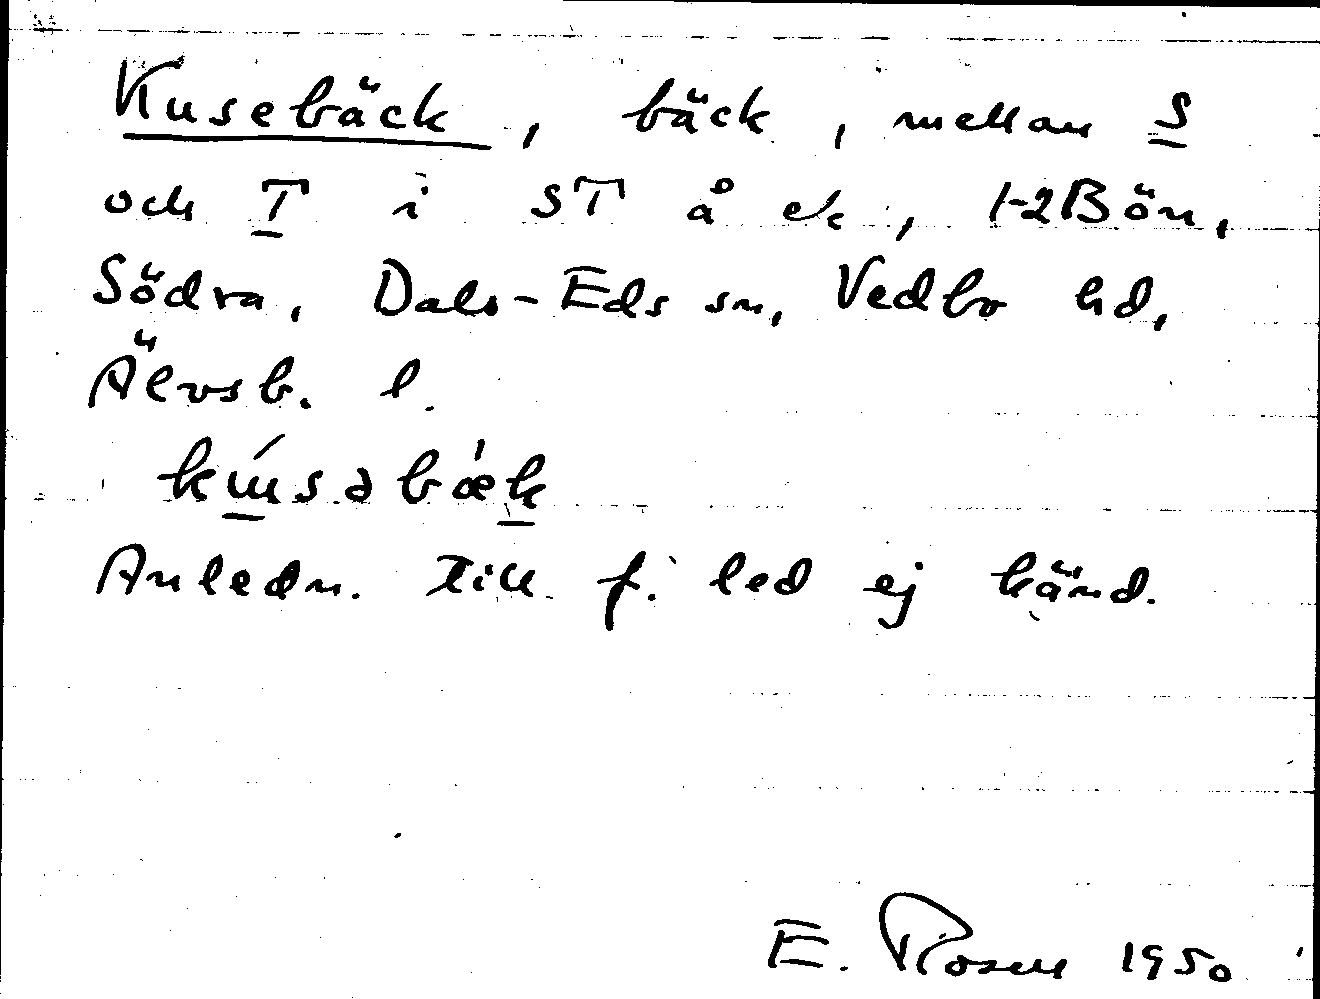 Kusebäck, bäck, mellan S
och T i ST å ek, 1-2 Bön,
Södra, Dals-Eds sn, Vedbo hd,
Älvsb. l.
kúsəbæ̀k
Anledn. till f. led ej känd.
E. Rosen 1950